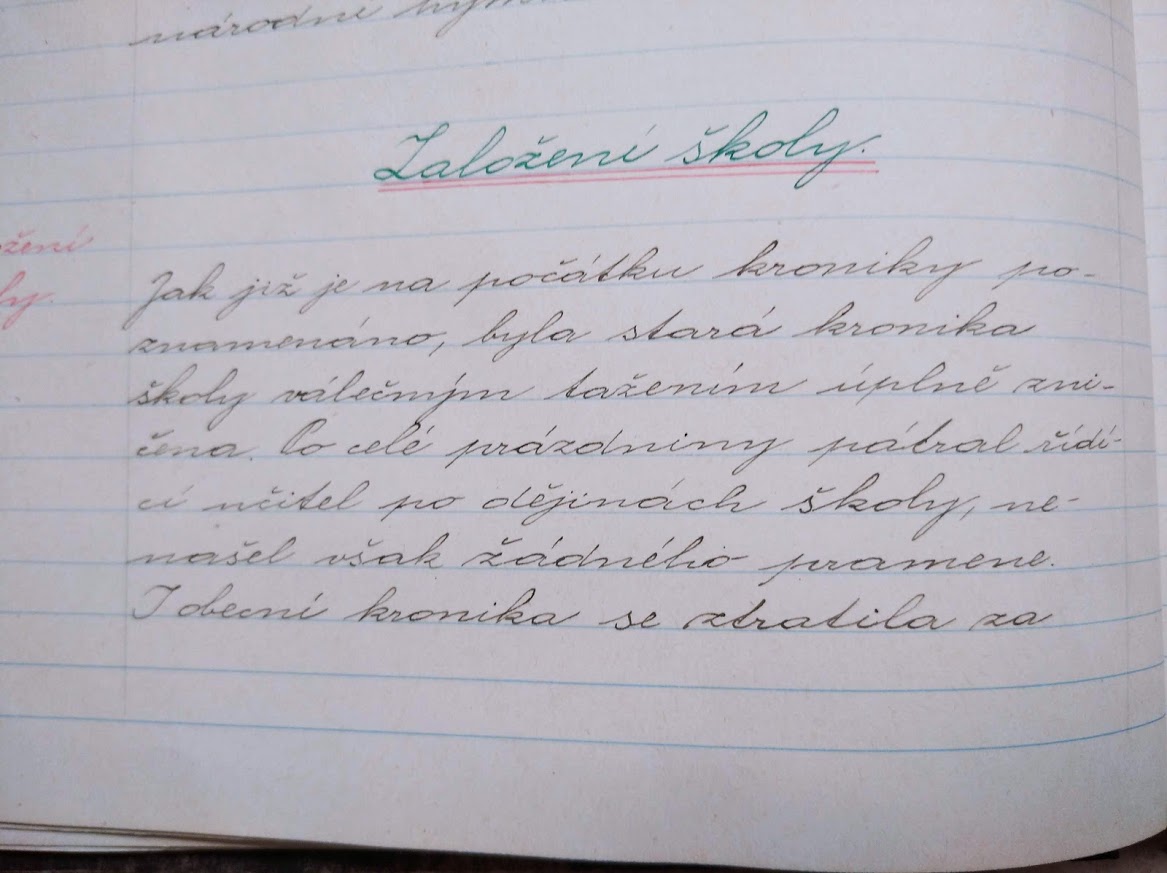 národní
Založení školy.
ožení
ly
Jak již je na počátku kroniky po-
znamenáno, byla stará kronika
školy válečným tažením úplně zni-
čena. Po celé prázdniny pátral řídí-
cí učitel po dějinách školy, ne-
našel však žádného pramene.
I obecní kronika se ztratila za